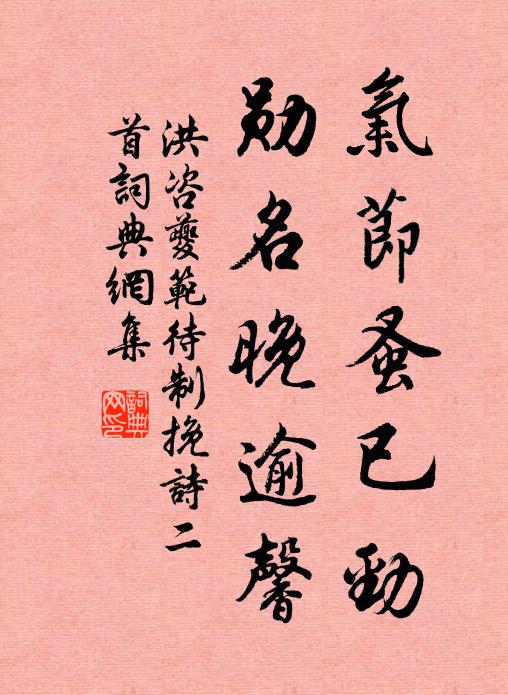 氣節蚤已勁
勋名晚逾馨
洪咨夔範待制挽詩二
首詞典網集
詞典网印